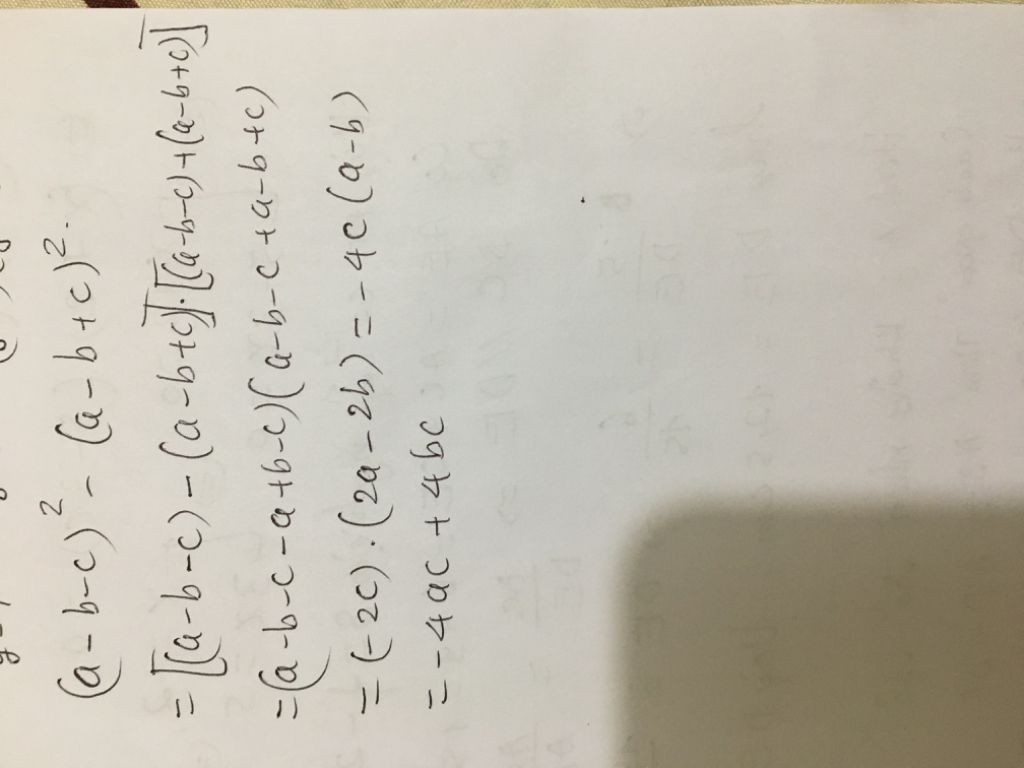 (a-b-c)² - (a-b+c)².
= [(a-b-c) - (a-b+c)]·[(a-b-c)+(a-b+c)]
= (a-b-c-a+b-c)(a-b-c+a-b+c)
= (-2c).(2a-2b) = -4c(a-b)
= -4ac + 4bc